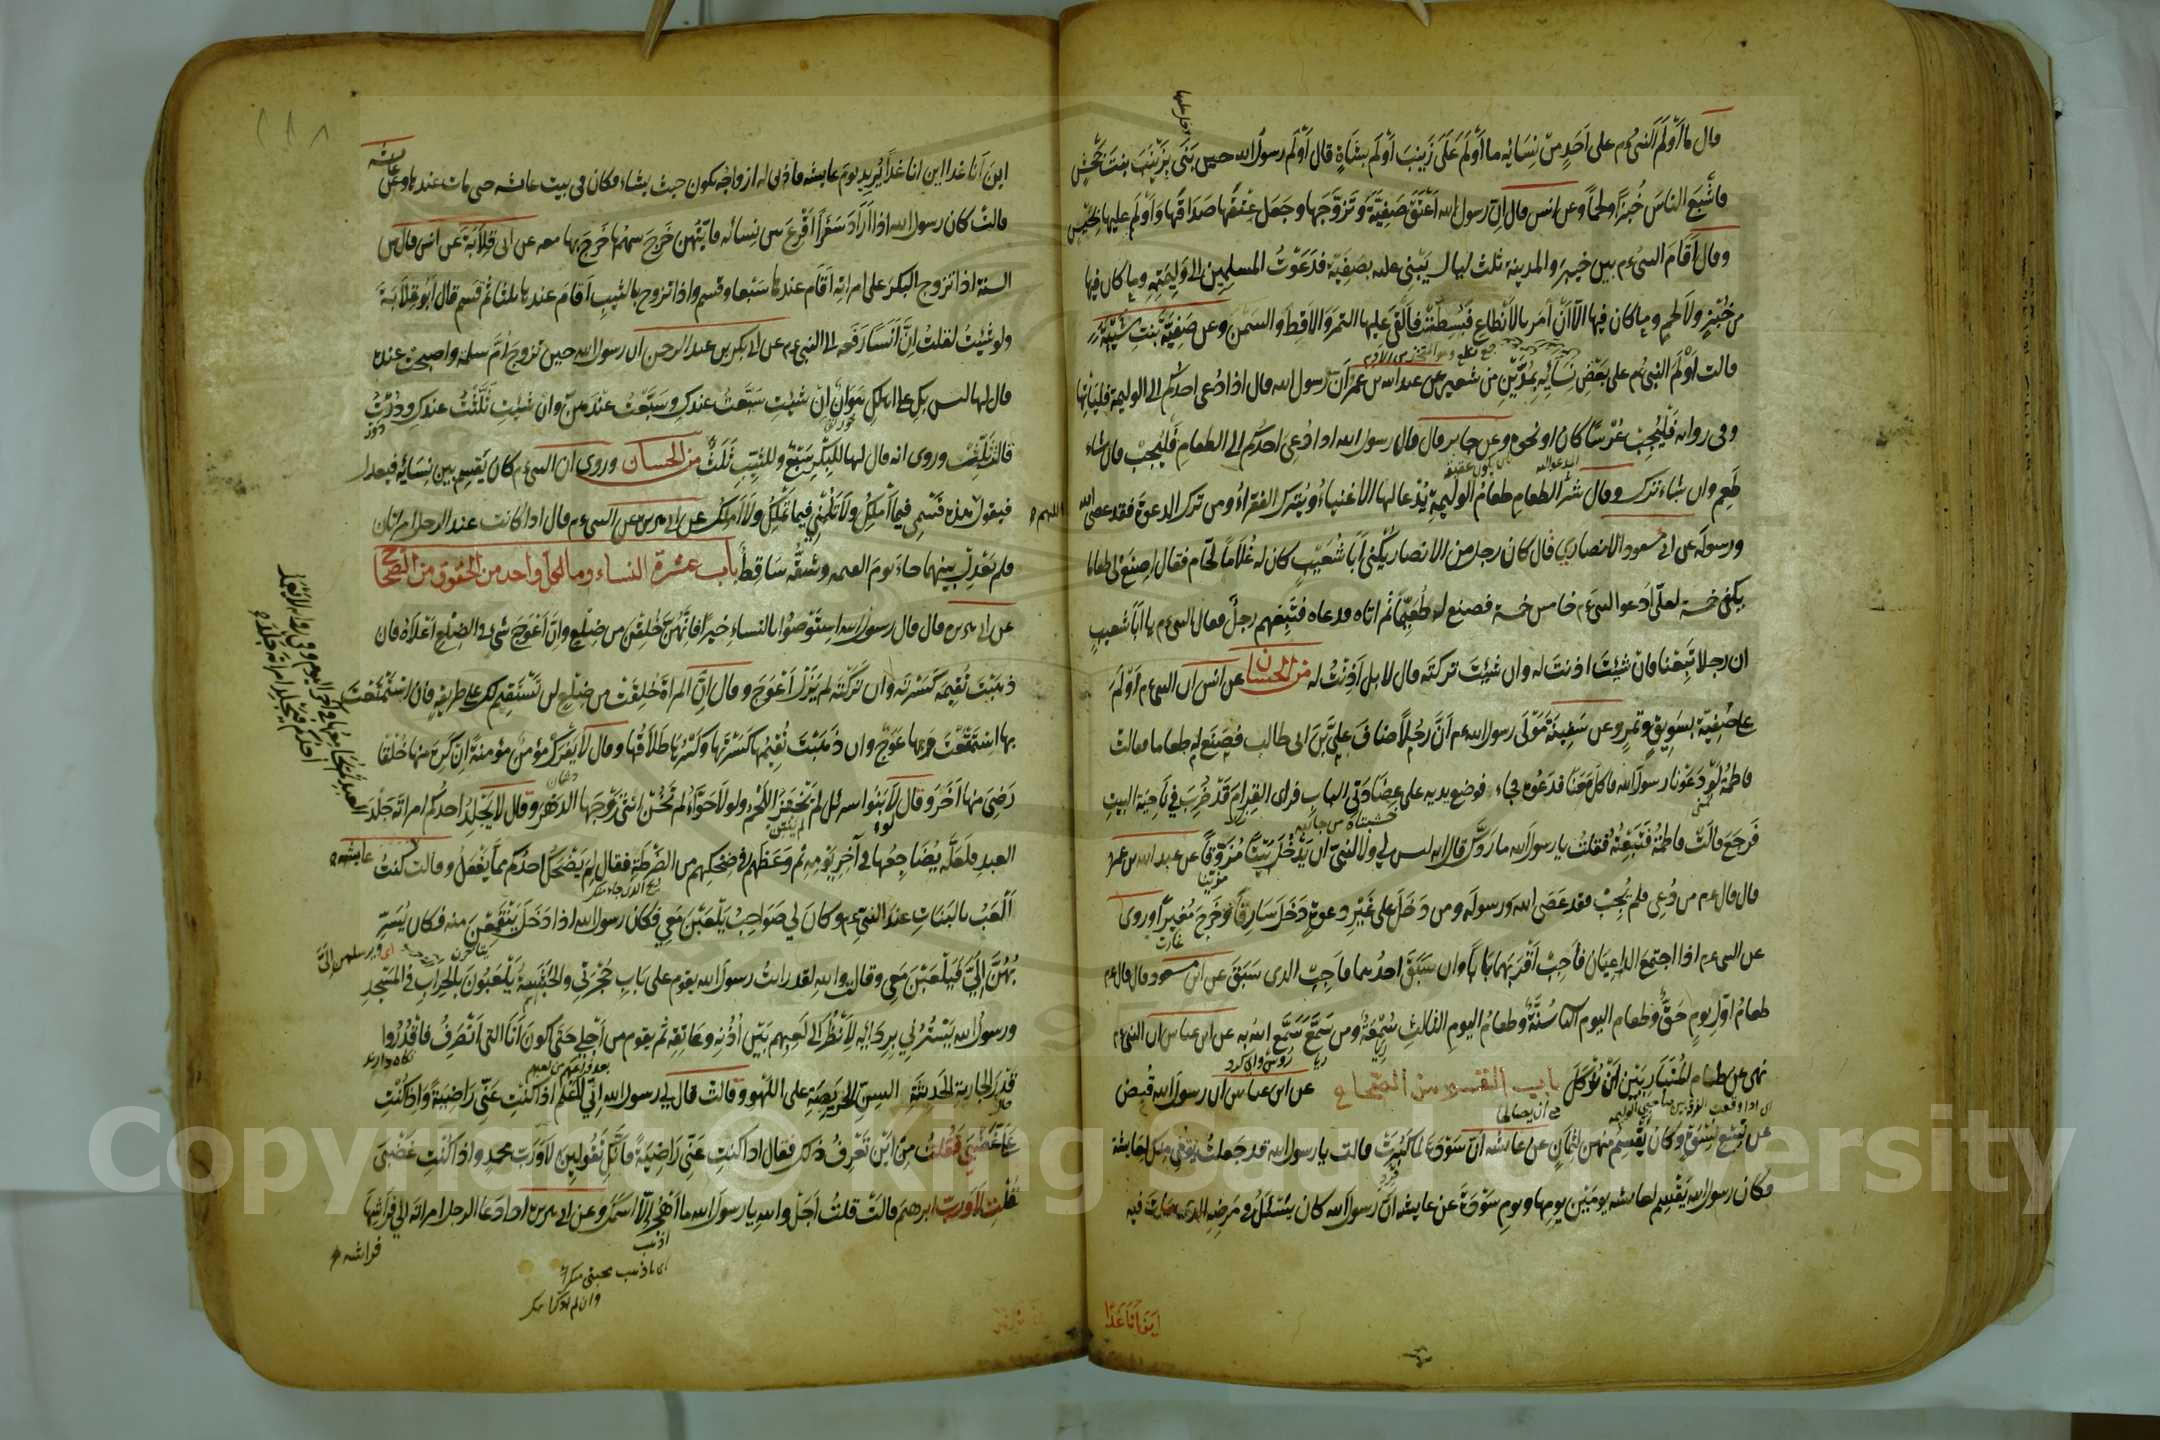 قال ما أولم النبي ءم على أحد من نسائه ما أولم على زينب أولم بشاة قال أولم رسول الله حين بنى بزينب بنت جحش
فأشبع الناس خبزا ولحما وعن انس قال ان رسول الله أعتق صفية وتزوجها وجعل عتقها صداقها وأولم عليها بحيس
وقال أقام النبي ءم بين خيبر والمدينة ثلث ليال يبنى عليه بصفية فدعوت المسلمين الى وليمته وما كان فيها
من خبز ولا لحم وما كان فيها الا أن أمر بالأنطاع فبسطت فألقى عليها التمر والاقط والسمن وعن صفية بنت شيبة
قالت أولم النبي ءم على بعض نسائه بمدين من شعير عن عبد الله بن عمر أن رسول الله قال اذا دعى احدكم الى الوليمة فليأتها
وفى رواية فليجب عرسا كان او نحوه وعن جابر قال قال رسول الله اذا دعى احدكم الى الطعام فليجب فان شاء
طعم وان شاء ترك وقال شر الطعام طعام الوليمة يدعى لها الاغنياء ويترك الفقراء ومن ترك الدعوة فقد عصى الله
ورسوله عن ابى مسعود الانصاري قال كان رجل من الانصار يكنى أبا شعيب كان له غلام لحام فقال اصنع لى طعاما
يكفى خمسة لعلى ادعو النبي ءم خامس خمسة فصنع له طعيما ثم اتاه فدعاه فتبعهم رجل فقال النبي ءم يا أبا شعيب
ان رجلا تبعنا فان شئت اذنت له وان شئت تركته قال لا بل أذنت له من الحسان عن انس ان النبي ءم أولم
على صفية بسويق وتمر وعن سفينة مولى رسول الله ءم أن رجلا ضاف علي بن ابى طالب فصنع له طعاما فقالت
فاطمة لو دعونا رسول الله فاكل معنا فدعوه فجاء فوضع يديه على عضادتي الباب فراى القرام قد ضرب في ناحية البيت
فرجع قالت فاطمة فتبعته فقلت يا رسول الله ما ردك قال انه ليس لي ولا لنبي ان يدخل بيتا مزوقا عن عبد الله بن عمر
قال قال ءم من دعى فلم يجب فقد عصى الله ورسوله ومن دخل على غير دعوة دخل سارقا وخرج مغيرا وروى
عن النبي ءم اذا اجتمع الداعيان فأجب أقربهما بابا وان سبق احدهما فأجب الذى سبق عن ابن مسعود قال قال ءم
طعام أول يوم حق وطعام اليوم الثانى سنة وطعام اليوم الثالث سمعة ومن سمع سمع الله به عن ابن عباس ان النبي ءم
نهى عن طعام المتباريين أن يوكل باب القسم من الصحاح عن ابن عباس ان رسول الله قبض
عن تسع نسوة وكان يقسم منهن لثمان عن عائشة أن سودة لما كبرت قالت يا رسول الله قد جعلت يومي منك لعايشة
فكان رسول الله يقسم لعايشة يومين يومها ويوم سودة عن عايشة ان رسول الله كان يسئل في مرضه الذى مات فيه
اين انا غدا
اين أنا غدا اين انا غدا يريد يوم عايشة فأذن له ازواجه يكون حيث يشاء فكان فى بيت عائشة حتى مات عندها وعن عائشة
قالت كان رسول الله اذا أراد سفرا أقرع بين نسائه فأيتهن خرج سهمها خرج بها معه عن ابى قلابة عن انس قال من
السنة اذا تزوج البكر على امراته أقام عندها سبعا وقسم واذا تزوج الثيب أقام عندها ثلثا ثم قسم قال أبو قلابة
ولو شئت لقلت ان أنسا رفعه الى النبي ءم عن ابى بكر بن عبد الرحمن ان رسول الله حين تزوج ام سلمة واصبحت عنده
قال لها ليس بك على اهلك هوان ان شئت سبعت عندك وسبعت عندهن وان شئت ثلثت عندك ودرت
قالت ثلث وروى انه قال لها للبكر سبع وللثيب ثلث من الحسان وروى ان النبي ءم كان يقسم بين نسائه فيعدل
فيقول اللهم هذه قسمي فيما أملك ولا تلمني فيما تملك ولا أملك عن ابى هريرة عن النبي ءم قال اذا كانت عند الرجل امراتان
فلم يعدل بينهما جاء يوم القيمة وشقه ساقط باب عشرة النساء وما لكل واحد من الحقوق من الصحاح
عن ابى هريرة قال قال رسول الله استوصوا بالنساء خيرا فانهن خلقن من ضلع وان أعوج شىء فى الضلع أعلاه فان
ذهبت تقيمه كسرته وان تركته لم يزل أعوج وقال ان المراة خلقت من ضلع لن تستقيم لك على طريقة فان استمتعت
بها استمتعت وبها عوج وان ذهبت تقيمها كسرتها وكسرها طلاقها وقال لا يفرك مؤمن مؤمنة ان كره منها خلقا
رضى منها آخر وقال لولا بنوا اسرائيل لم يخنز اللحم ولولا حواء لم تخن انثى زوجها الدهر وقال لا يجلد احدكم امراته جلد
العبد فلعله يضاجعها فى آخر يومه ثم وعظهم فى ضحكهم من الضرطة فقال لم يضحك احدكم مما يفعل وقالت عايشة كنت
ألعب بالبنات عند النبي ءم وكان لي صواحب يلعبن معي فكان رسول الله اذا دخل ينقمعن منه فكان يسر
بهن إلي فيلعبن معي وقالت والله لقد رايت رسول الله يقوم على باب حجرتي والحبشة يلعبون بالحراب في المسجد
ورسول الله يسترني بردائه لأنظر الى لعبهم بين أذنه وعاتقه ثم يقوم من أجلي حتى أكون أنا التى أنصرف فاقدروا
قدر الجارية الحديثة السن الحريصة على اللهو وقالت قال لي رسول الله اني لأعلم اذا كنت عني راضية واذا كنت
علي غضبى فقلت من أين تعرف ذلك فقال اذا كنت عني راضية فانك تقولين لا ورب محمد واذا كنت غضبى
قلت لا ورب ابرهيم قالت قلت أجل والله يا رسول الله ما أهجر إلا اسمك وعن ابى هريرة اذا دعا الرجل امراته الى فراشها
Copyright © King Saud University